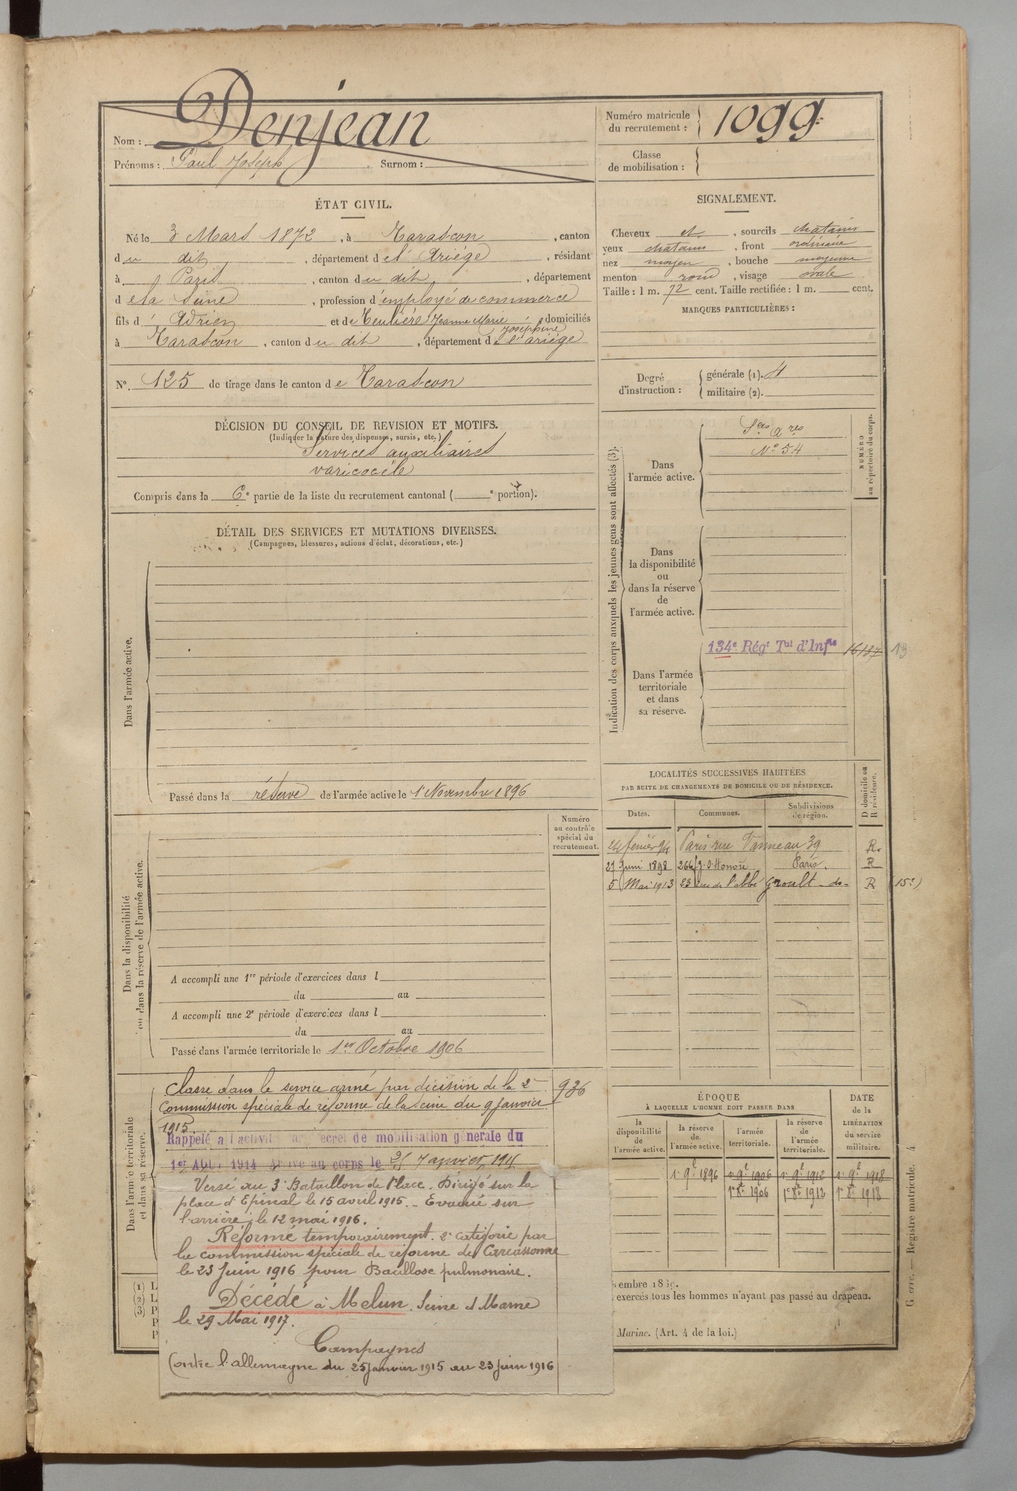 Nom : Denjean
Prénoms : Paul Joseph Surnom :
Numéro matricule du recrutement : 1099
Classe de mobilisation :
ÉTAT CIVIL.
Né le 3 Mars 1872, à Tarascon, canton
du dit, département de l'Ariège, résidant
à Paris, canton du dit, département
de la Seine, profession d'employé de commerce
fils d' Adrien et de Teulière Jeanne Marie Joséphine, domiciliés
à Tarascon, canton du dit, département de l'ariège
N° 125 de tirage dans le canton de Tarascon
SIGNALEMENT.
Cheveux et, sourcils chatains
yeux chatains, front ordinaire
nez moyen, bouche moyenne
menton rond, visage ovale
Taille : 1 m. 72 cent. Taille rectifiée : 1 m. cent.
MARQUES PARTICULIÈRES :
Degré d'instruction :
générale (1). 4
militaire (2).
DÉCISION DU CONSEIL DE REVISION ET MOTIFS.
(Indiquer la nature des dispenses, sursis, etc.)
Services auxiliaires
varicocèle
Compris dans la 6e partie de la liste du recrutement cantonal ( e portion).
DÉTAIL DES SERVICES ET MUTATIONS DIVERSES.
(Campagnes, blessures, actions d'éclat, décorations, etc.)
Dans l'armée active.
Passé dans la réserve de l'armée active le 1 Novembre 1896
Indication des corps auxquels les jeunes gens sont affectés (3).
NUMÉRO au répertoire du corps.
Dans l'armée active.
N° 54
Dans la disponibilité ou dans la réserve de l'armée active.
Dans l'armée territoriale et dans sa réserve.
134e Régt Tal d'Infie
LOCALITÉS SUCCESSIVES HABITÉES
PAR SUITE DE CHANGEMENTS DE DOMICILE OU DE RÉSIDENCE.
D domicile ou R résidence.
Dates. Communes. Subdivisions de région.
Paris rue Vanneau 39 R.
27 Juin 1898 266 f.g St Honoré Paris. R
5 Mai 1913 23 rue de l'abbé Groult do R (15e)
Numéro au contrôle spécial du recrutement.
Dans la disponibilité ou dans la réserve de l'armée active.
A accompli une 1re période d'exercices dans l
du au
A accompli une 2e période d'exercices dans l
du au
Passé dans l'armée territoriale le 1er Octobre 1906
Dans l'armée territoriale et dans sa réserve.
Classé dans le service armé par décision de la 2e 936
Commission spéciale de réforme de la Seine du 9 janvier
1915
Rappelé à l'activité par décret de mobilisation générale du
1er Août 1914 Arrivé au corps le 25 Janvier 1915
Versé au 3e Bataillon de Place. Dirigé sur la
place d'Epinal le 15 avril 1915. Evacué sur
l'arrière le 12 mai 1916.
Réformé temporairement. 2e catégorie par
la commission spéciale de réforme de Carcassonne
le 23 Juin 1916 pour Bacillose pulmonaire.
Décédé à Melun, Seine et Marne
le 29 Mai 1917.
Campagnes
Contre l'allemagne du 25 Janvier 1915 au 23 Juin 1916
ÉPOQUE
À LAQUELLE L'HOMME DOIT PASSER DANS
DATE de la LIBÉRATION du service militaire.
la disponibilité de l'armée active.
la réserve de l'armée active.
l'armée territoriale.
la réserve de l'armée territoriale.
1er 9bre 1896 1er 9bre 1906 1er 9bre 1912 1er 9bre 1918
1er Xbre 1906 1er Xbre 1912 1er Xbre 1918
exercés tous les hommes n'ayant pas passé au drapeau.
Marine. (Art. 4 de la loi.)
(1)
(2)
(3)
Registre matricule. 4